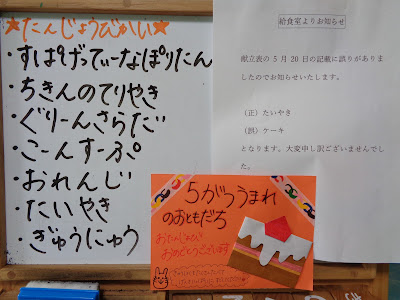 ★たんじょうびかい★
・すぱげってぃーなぽりたん
・ちきんのてりやき
・ぐりーんさらだ
・こーんすーぷ
・おれんじ
・たいやき
・ぎゅうにゅう
給食室よりお知らせ
献立表の5月20日の記載に誤りがありま
したのでお知らせいたします。
（正）たいやき
（誤）ケーキ
となります。大変申し訳ございませんでし
た。
5がつうまれ
のおともだち
おたんじょうび
おめでとうございます